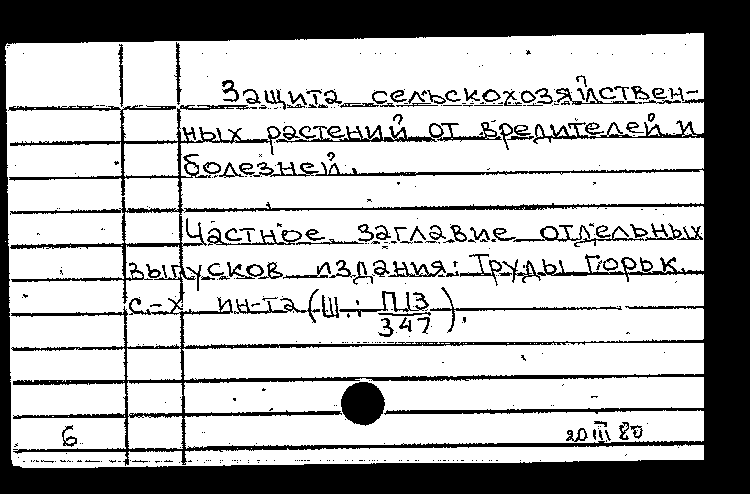 Защита сельскохозяйствен-
ных растений от вредителей и
болезней.
Частное заглавие отдельных
выпусков издания: Труды Горьк.
с.-х. ин-та (Ш.: П13/347).
6
20 III 80